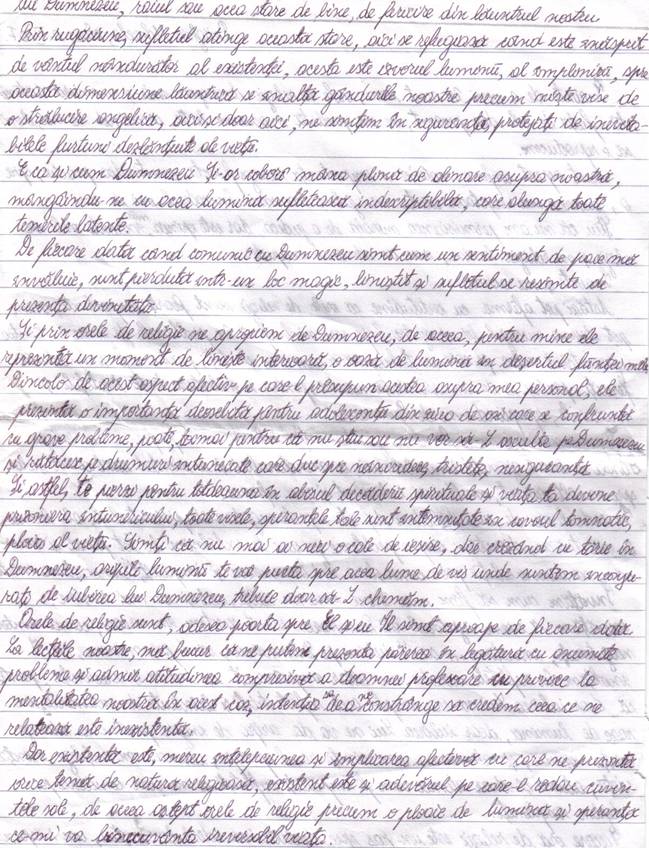 lui Dumnezeu, raiul sau acea stare de bine, de fericire din lăuntrul nostru
Prin rugăciune, sufletul atinge această stare, aici se refugiază când este înăsprit
de vântul neîndurător al existenței, acesta este izvorul luminii, al împlinirii, spre
această dimensiune lăuntrică se înalță gândurile noastre precum niște vise de
o strălucire angelică, aici și doar aici, ne simțim în siguranță, protejați de inevita-
bilele furtuni dezlănțuite de viață.
E ca și cum Dumnezeu Și-ar coborî mâna plină de alinare asupra noastră,
mângâindu-ne cu acea lumină sufletească indescriptibilă, care alungă toate
temerile latente.
De fiecare dată când comunic cu Dumnezeu simt cum un sentiment de pace mă
învăluie, sunt pierdută într-un loc magic, liniștit și sufletul se resimte de
prezența divinității.
Și prin orele de religie ne apropiem de Dumnezeu, de aceea, pentru mine ele
reprezintă un moment de liniște interioară, o oază de lumină în deșertul ființei mele
Dincolo de acest aspect afectiv pe care-l presupun acestea asupra mea personal, ele
prezintă o importanță deosebită pentru adolescenții din ziua de azi care se confruntă
cu grave probleme, poate tocmai pentru că nu știu sau nu vor să-L asculte pe Dumnezeu
și rătăcesc pe drumuri întunecate care duc spre neîncredere, tristețe, nesiguranță
Și astfel, te pierzi pentru totdeauna în abisul decăderii spirituale și viața ta devine
prizoniera întunericului, toate visele, speranțele tale sunt întemnițate în cercul tematic,
ploios al vieții. Simți că nu mai ai nici o cale de ieșire, dar crezând cu tărie în
Dumnezeu, aripile luminii te vor purta spre acea lume de vis unde suntem înconju-
rați de iubirea lui Dumnezeu, trebuie doar să-L chemăm.
Orele de religie sunt, adesea poarta spre El și eu Îl simt aproape de fiecare dată
La lecțiile noastre, mă bucur că ne putem prezenta părerea în legătură cu anumite
probleme și admir atitudinea comprehensivă a doamnei profesoare cu privire la
mentalitatea noastră în acest caz, intenția de a ne constrânge să credem ceea ce ne
relatează este inexistentă.
Dar existentă este, mereu înțelepciunea și implicarea afectivă cu care ne prezintă
orice temă de natură religioasă, existent este și adevărul pe care-l redau cuvin-
tele sale, de aceea aștept orele de religie precum o ploaie de lumină și speranță
ce-mi va binecuvânta ireversibil viața.